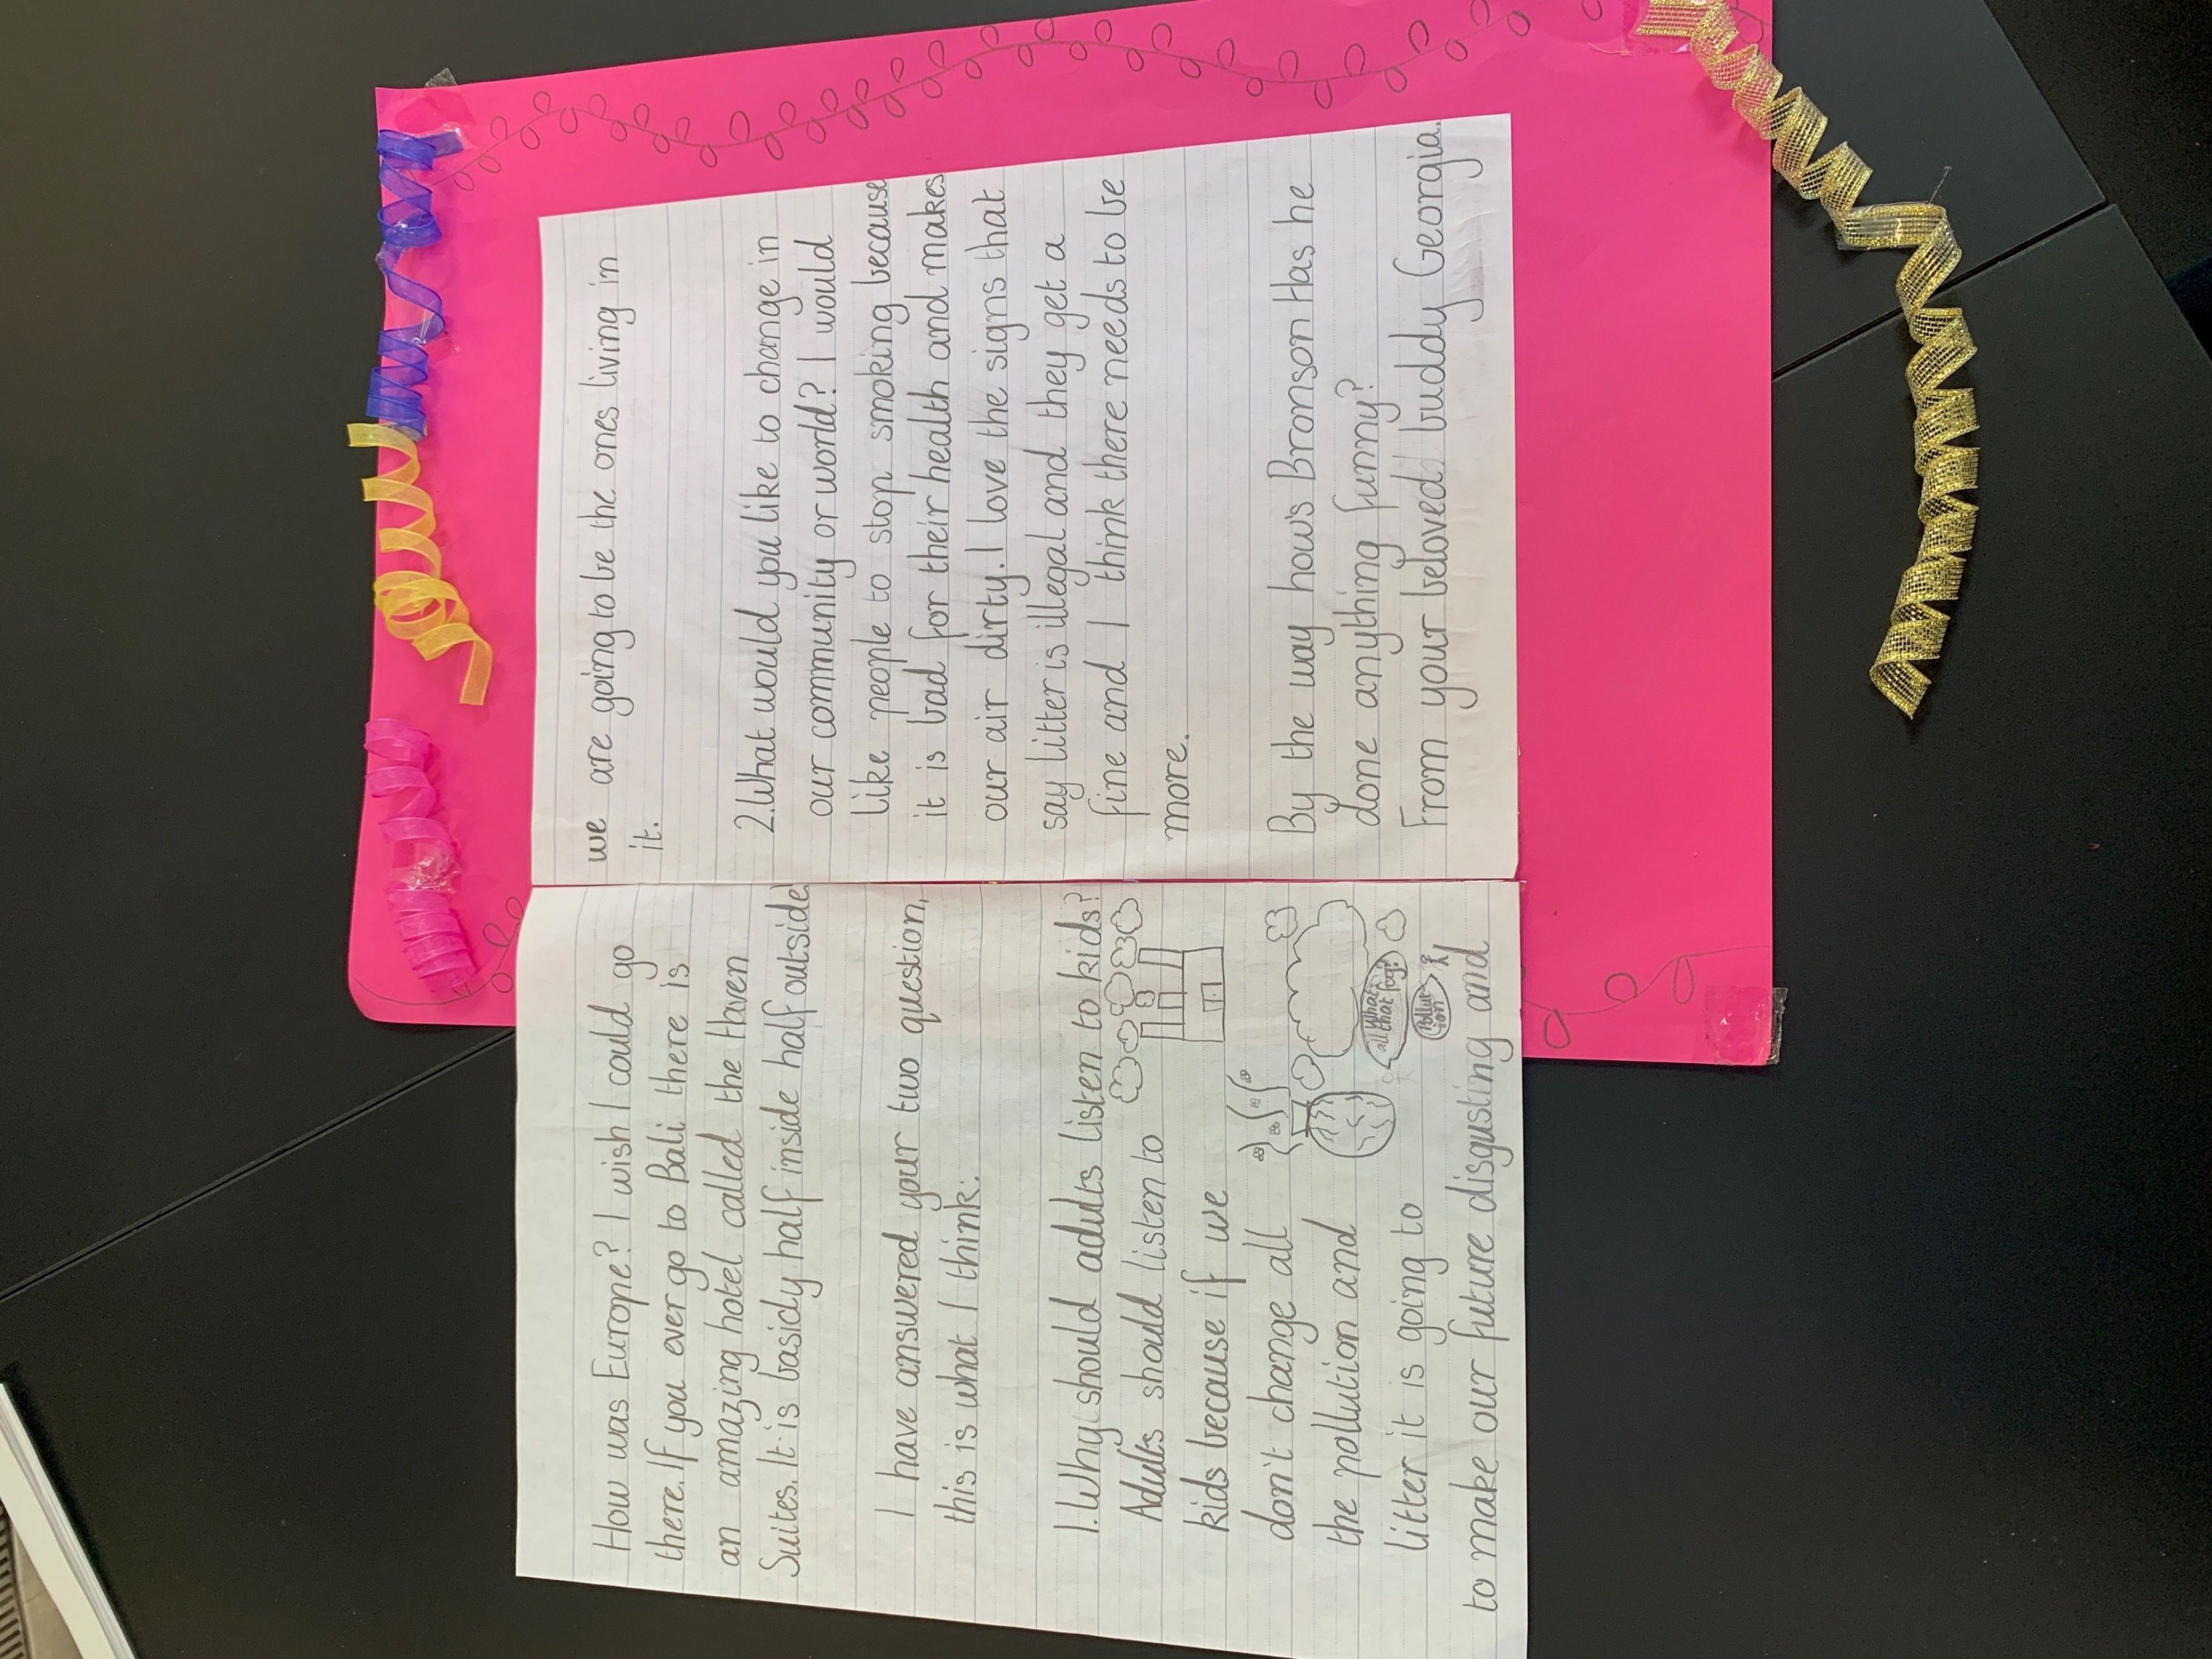 How was Europe? I wish I could go
there. If you ever go to Bali there is
an amazing hotel called the Haven
Suites. It is basicly half inside half outside.
I have answered your two question,
this is what I think:
1. Why should adults listen to kids?
Adults should listen to
kids because if we
don't change all
the pollution and
litter it is going to
to make our future disgusting and
What
all that fog?
Pollut
ion
we are going to be the ones living in
it.
2. What would you like to change in
our community or world? I would
like people to stop smoking because
it is bad for their health and makes
our air dirty. I love the signs that
say litter is illegal and they get a
fine and I think there needs to be
more.
By the way how's Bronson Has he
done anything funny?
From your beloved buddy Georgia.